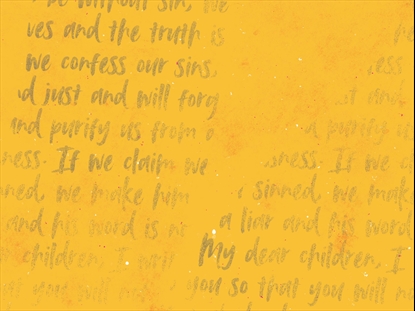 be without sin, we
ves and the truth is
we confess our sins, ess
d just and will forg t and
and purify us from a purify u
ness. If we claim we ness. If we c
nned, we make him sinned, we mak
and his word is n a liar and his word
children, I My dear children, I
that you will no you so that you will not